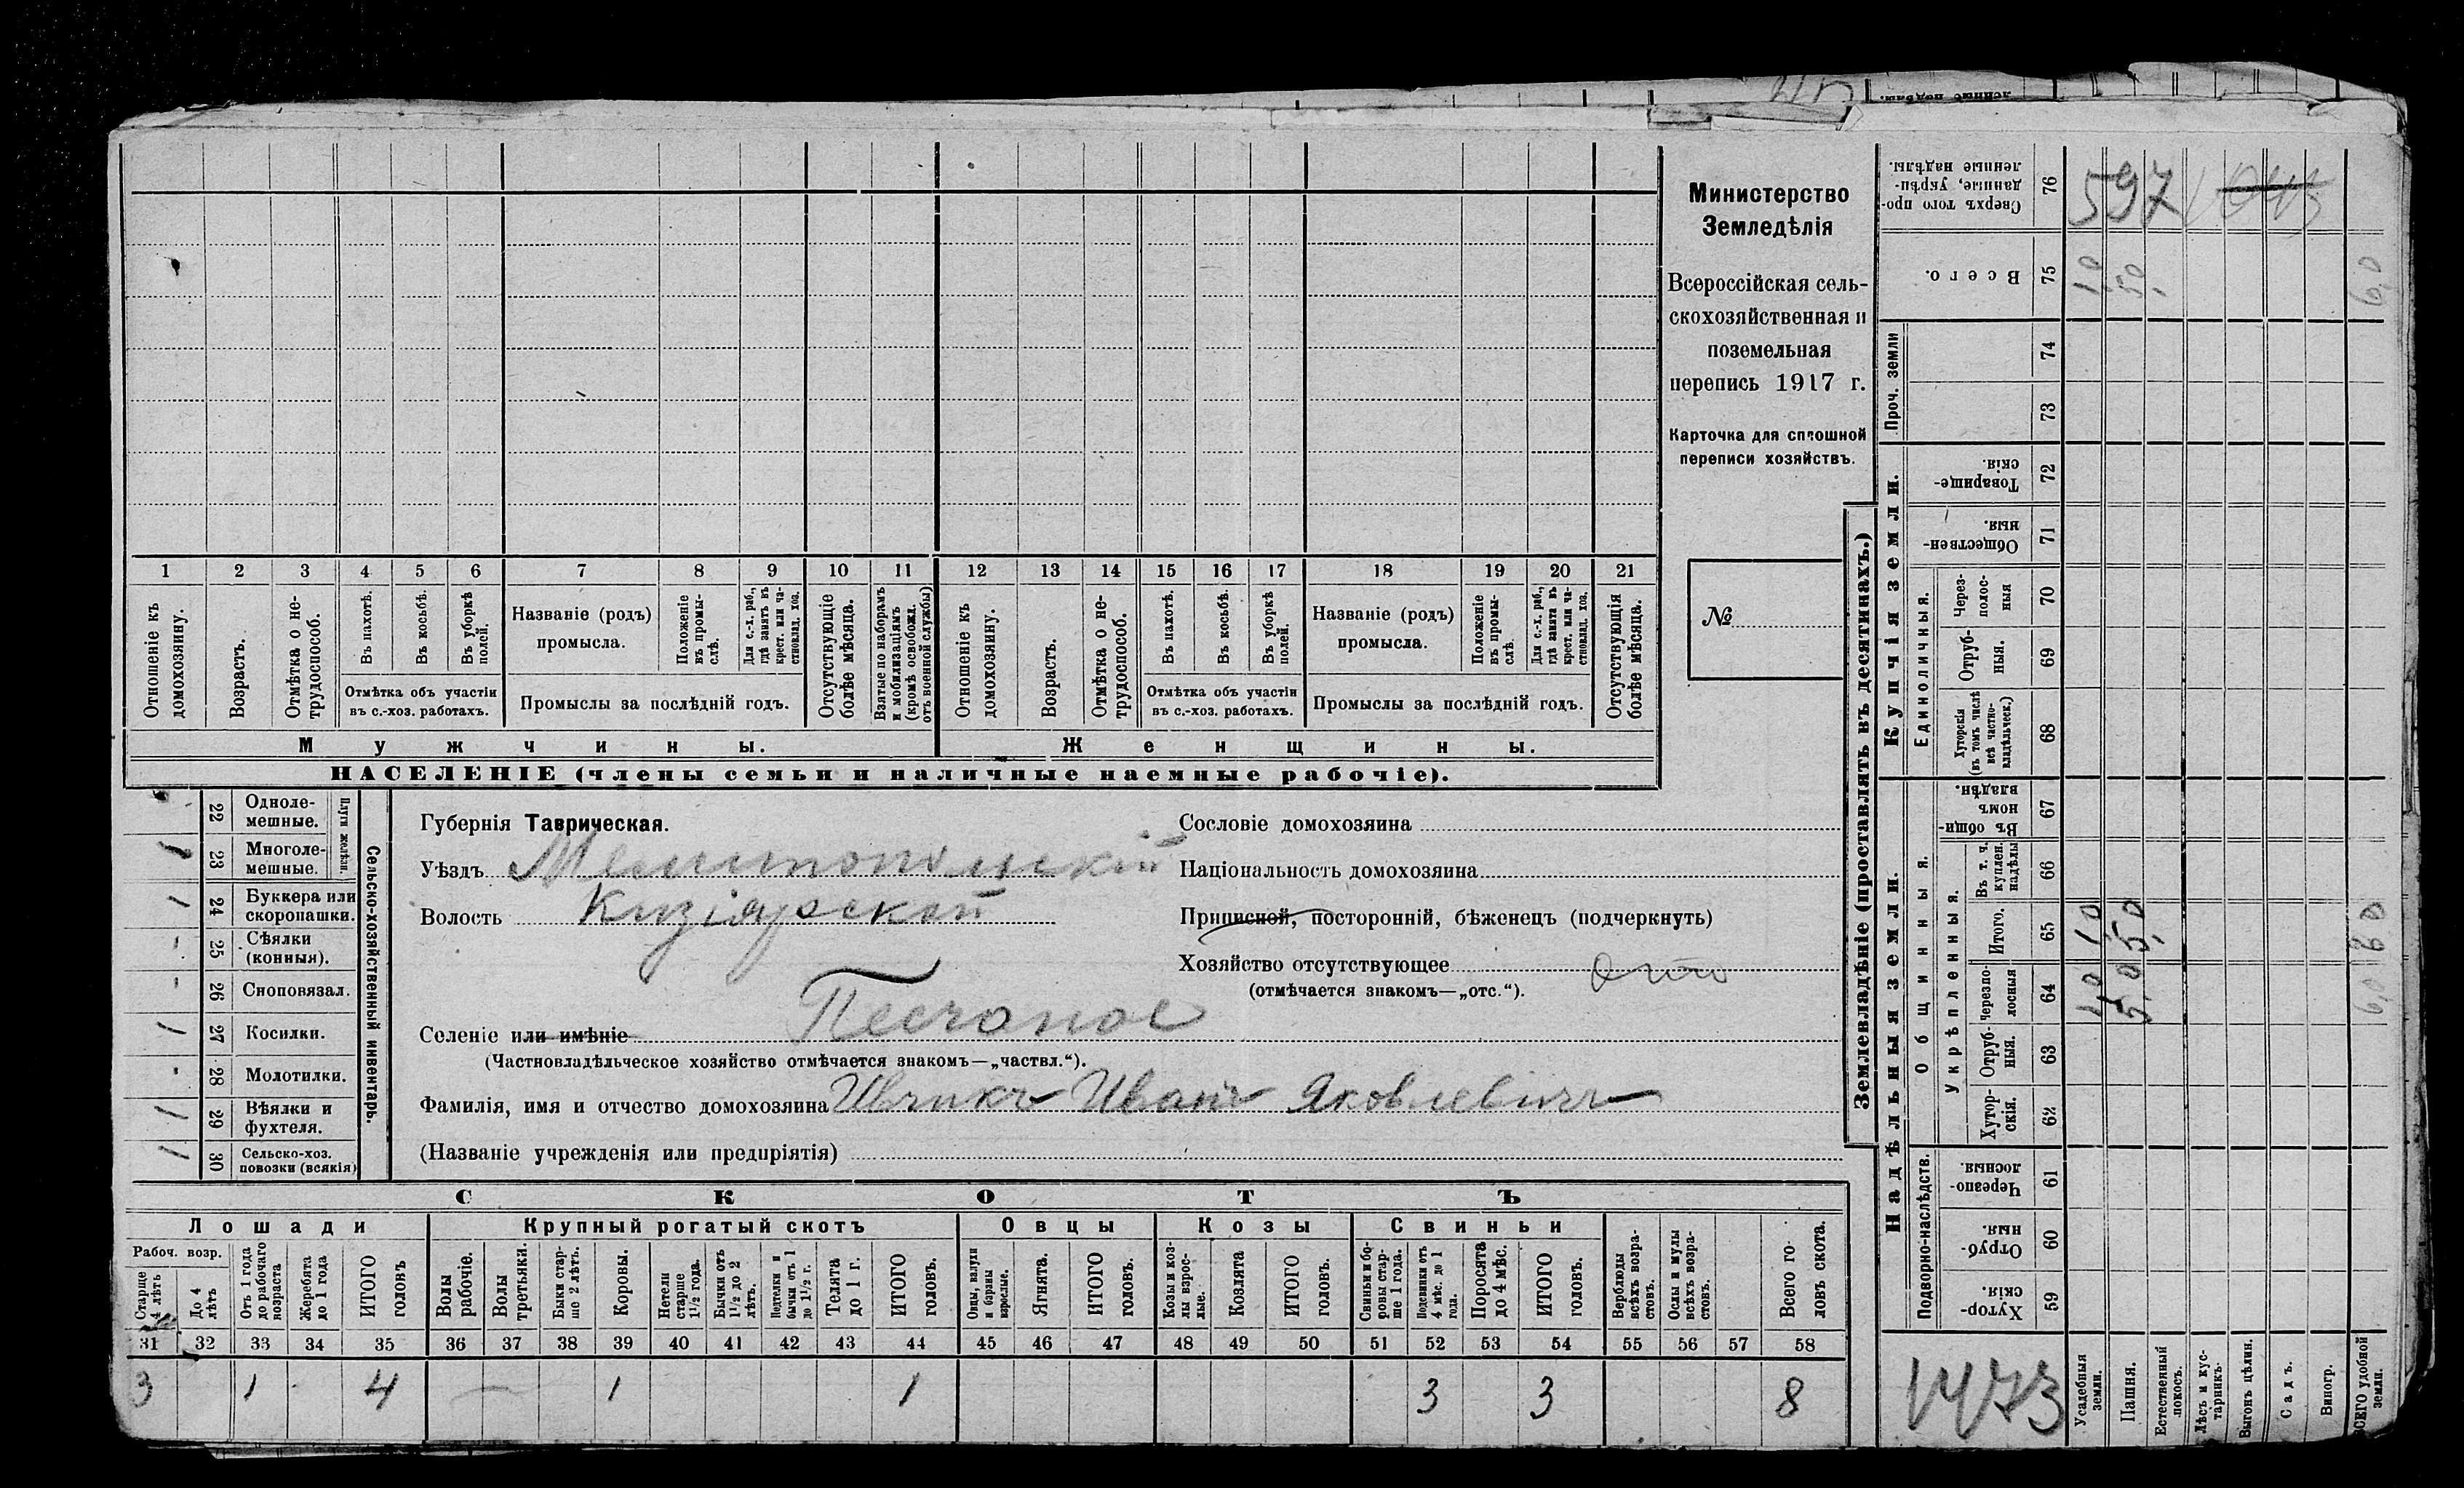 Министерство
Земледѣлія
Всероссійская сель-
скохозяйственная и
поземельная
перепись 1917 г.
Карточка для сплошной
переписи хозяйствъ.
№
1 2 3 4 5 6 7 8 9 10 11 12 13 14 15 16 17 18 19 20 21
Отношеніе къ домохозяину.
Возрастъ.
Отмѣтка о не-трудоспособ.
Въ пахотѣ.
Въ косьбѣ.
Въ уборкѣ полей.
Отмѣтка объ участіи
въ с.-хоз. работахъ.
Названіе (родъ)
промысла.
Положеніе въ промы-слѣ.
Для с.-х. раб., гдѣ занятъ въ крест. или ча-стновлад. хоз.
Промыслы за послѣдній годъ.
Отсутствующіе болѣе мѣсяца.
Взятые по наборамъ и мобилизаціямъ (кромѣ освобожд. отъ военной службы)
Отношеніе къ домохозяину.
Возрастъ.
Отмѣтка о не-трудоспособ.
Въ пахотѣ.
Въ косьбѣ.
Въ уборкѣ полей.
Отмѣтка объ участіи
въ с.-хоз. работахъ.
Названіе (родъ)
промысла.
Положеніе въ промы-слѣ.
Для с.-х. раб., гдѣ занята въ крест. или ча-стновлад. хоз.
Промыслы за послѣдній годъ.
Отсутствующія болѣе мѣсяца.
Мужчины. Женщины.
НАСЕЛЕНІЕ (члены семьи и наличные наемные рабочіе).
Сельско-хозяйственный инвентарь.
Плуги желѣзн.
22 Одноле-мешные.
1 23 Многоле-мешные.
1 24 Буккера или скоропашки.
- 25 Сѣялки (конныя).
- 26 Сноповязал.
1 27 Косилки.
- 28 Молотилки.
1 29 Вѣялки и фухтеля.
1 30 Сельско-хоз. повозки (всякія)
Губернія Таврическая.
Уѣздъ Мелитопольскій
Волость Кизіярской
Сословіе домохозяина
Національность домохозяина
Приписной, посторонній, бѣженецъ (подчеркнуть)
Хозяйство отсутствующее
(отмѣчается знакомъ—„отс.“).
Селеніе или имѣніе Песчаное
(Частновладѣльческое хозяйство отмѣчается знакомъ—„частвл.“).
Фамилія, имя и отчество домохозяина Ивчикъ Иванъ Яковлевичъ
(Названіе учрежденія или предпріятія)
СКОТЪ
Лошади Крупный рогатый скотъ Овцы Козы Свиньи
Рабоч. возр.
Старше 4 лѣтъ
До 4 лѣтъ
Отъ 1 года до рабочаго возраста
Жеребята до 1 года
ИТОГО головъ
Волы рабочіе.
Волы третьяки.
Быки стар-ше 2 лѣтъ.
Коровы.
Нетели старше 1½ года.
Бычки отъ 1½ до 2 лѣтъ.
Подтелки и бычки отъ 1 до 1½ г.
Телята до 1 г.
ИТОГО головъ.
Овцы, валухи и бараны взрослые.
Ягнята.
ИТОГО головъ.
Козы и коз-лы взрос-лые.
Козлята
ИТОГО головъ.
Свиньи и бо-ровы стар-ше 1 года.
Подсвинки отъ 4 мѣс. до 1 года.
Поросята до 4 мѣс.
ИТОГО головъ.
Верблюды всѣхъ возра-стовъ.
Ослы и мулы всѣхъ возра-стовъ.
Всего го-ловъ скота.
31 32 33 34 35 36 37 38 39 40 41 42 43 44 45 46 47 48 49 50 51 52 53 54 55 56 57 58
3 1 4 1 1 3 3 8
Землевладѣніе (проставлять въ десятинахъ.)
Сверхъ того про-данные, укрѣп-ленные надѣлы. 76 597
Всего. 75 1,0 5,0 6,0
Проч. земли
74
73
Купчія земли.
Товарище-скія. 72
Обществен-ныя. 71
Единоличныя.
Через-полос-ныя 70
Отруб-ныя. 69
Хуторскія (въ томъ числѣ всѣ частно-владѣльческ.) 68
Надѣльныя земли.
Общинныя.
Въ общин-номъ владѣн. 67
Укрѣпленныя.
Въ т. ч. куплен. надѣлы 66
Итого. 65 1,0 5,0 6,0
Черезпо-лосныя 64 1,0 5,0 6,0
Отруб-ныя. 63
Хутор-скія. 62
Подворно-наслѣдств.
Черезпо-лосныя. 61
Отруб-ныя. 60
Хутор-скія. 59
1473
Усадебныя земли.
Пашня.
Естественный покосъ.
Лѣсъ и кус-тарникъ.
Выгонъ цѣлин.
Садъ.
Виногр.
ВСЕГО удобной земли.